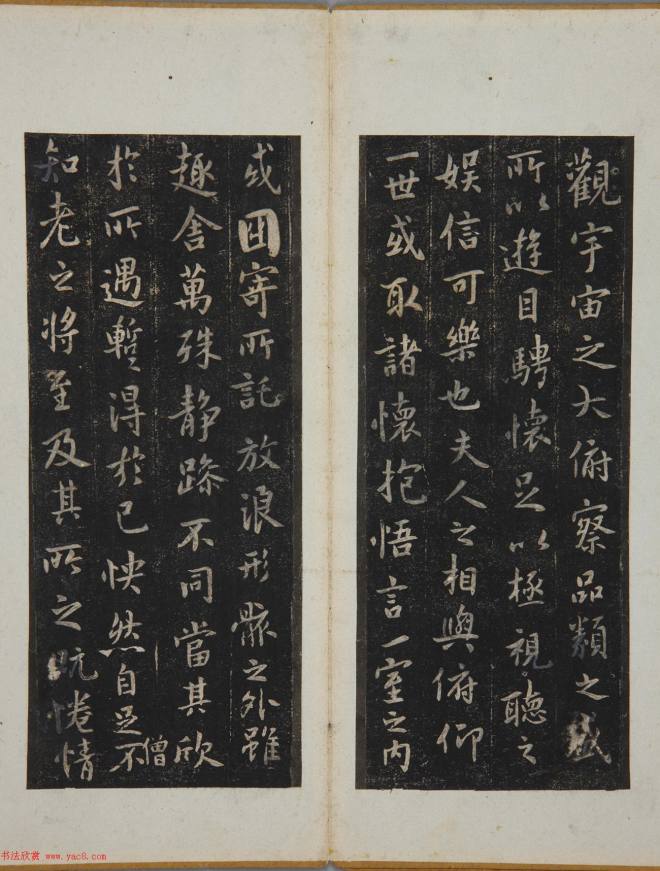 觀宇宙之大俯察品類之盛
所以遊目騁懷足以極視聽之
娱信可樂也夫人之相與俯仰
一世或取諸懷抱悟言一室之内
或因寄所託放浪形骸之外雖
趣舍萬殊静躁不同當其欣
於所遇蹔得於己怏然自足不
僧
知老之將至及其所之既惓情
书法欣赏 www.yac8.com